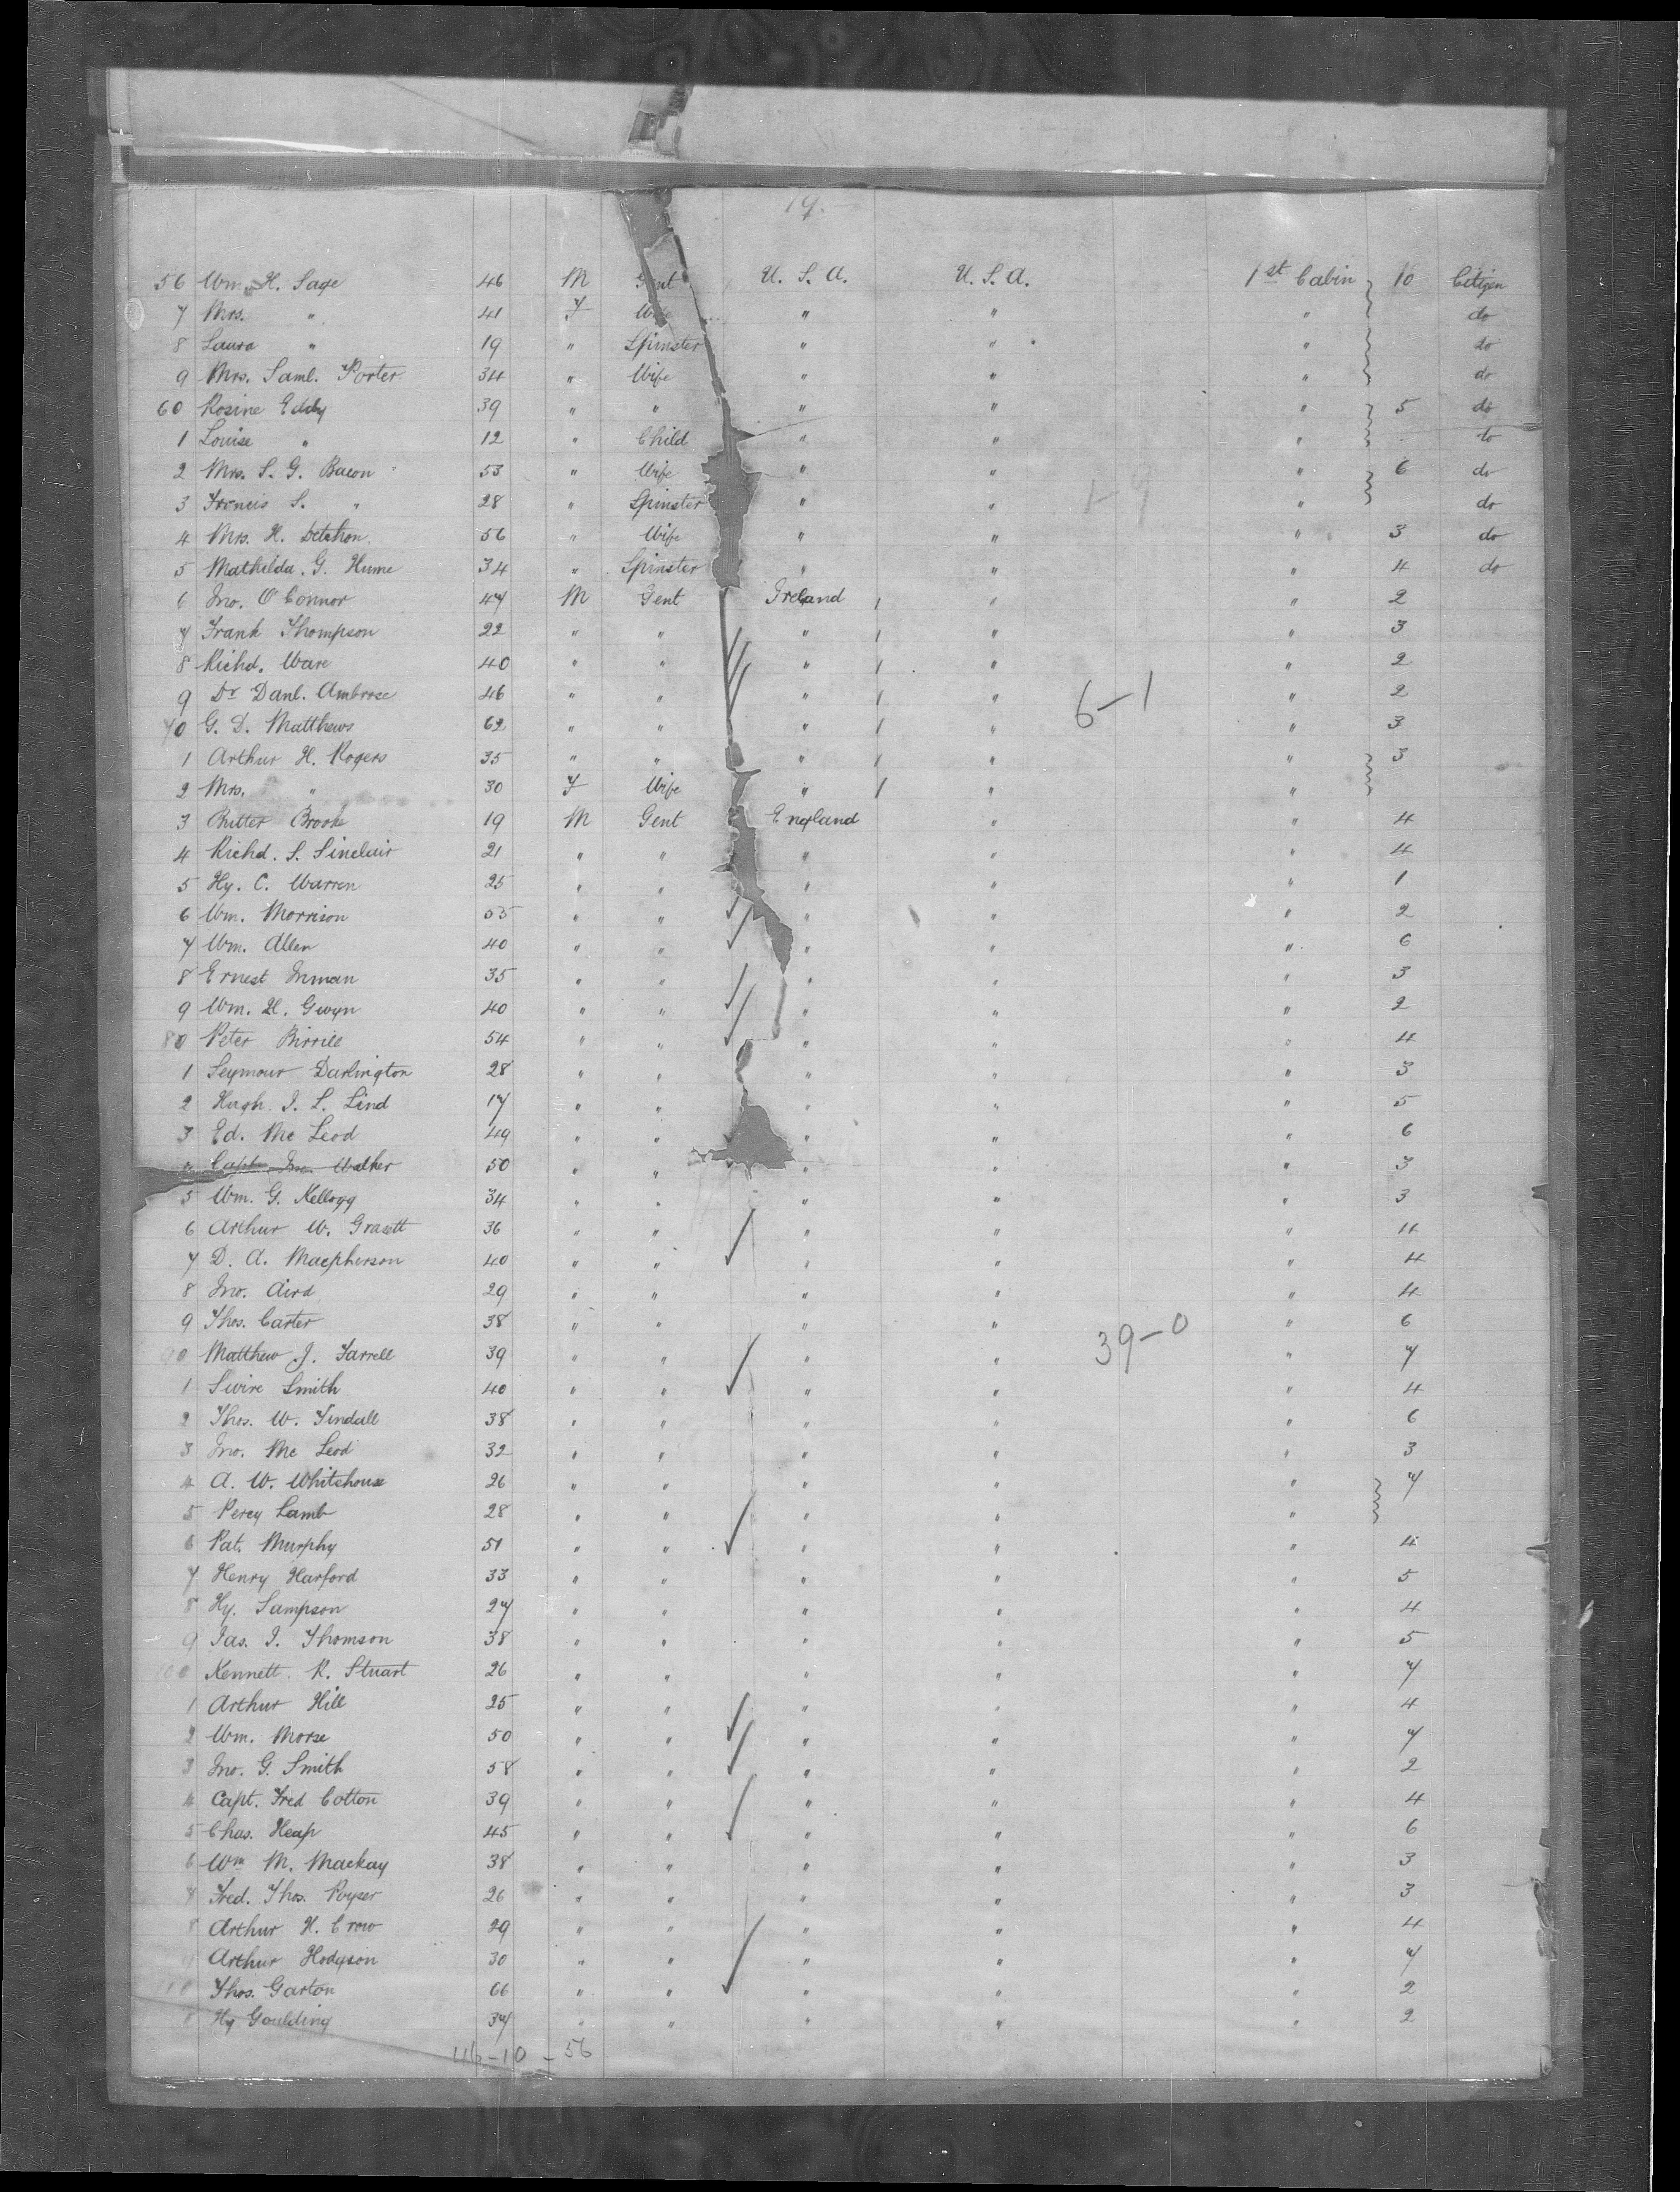 19.
56 Wm. H. Sage 46 M Gent U. S. A. U. S. A. 1st Cabin 10 Citizen
7 Mrs. " 41 F Wife " " " do
8 Laura " 19 " Spinster " " " do
9 Mrs. Saml. Porter 34 " Wife " " " do
60 Rosine Eddy 39 " " " " " 5 do
1 Louise " 12 " Child " " " do
2 Mrs. S. G. Bacon 53 " Wife " " " 6 do
3 Francis S. " 28 " Spinster " " " do
1-9
4 Mrs. H. 56 " Wife " " " 3 do
5 Mathilda. G. Hume 34 " Spinster " " " 4 do
6 Jno. O'Connor 47 M Gent Ireland " " 2
7 Frank Thompson 22 " " " " " 3
8 Richd. Ware 40 " " " " " 2
9 Dr Danl. Ambrose 46 " " " " " 2
6-1
70 G. D. Matthews 62 " " " " " 3
1 Arthur H. Rogers 35 " " " " " 3
2 Mrs. " 30 F Wife " " "
3 Brook 19 M Gent England " " 4
4 Richd. S. Sinclair 21 " " " " " 4
5 Hy. C. Warren 25 " " " " " 1
6 Wm. Morrison 55 " " " " 2
7 Wm. Allen 40 " " " " " 6
8 Ernest Inman 35 " " " " " 3
9 Wm. H. Gwyn 40 " " " " " 2
80 Peter Birrell 54 " " " " " 4
1 Seymour Darlington 28 " " " " " 3
2 Hugh. J. L. Lind 17 " " " " " 5
3 Ed. Mc Leod 49 " " " " " 6
4 Capt. Jno. Walker 50 " " " " " 3
5 Wm. G. Kellogg 34 " " " " " 3
6 Arthur W. Grasett 36 " " " " " 4
7 D. A. Macpherson 40 " " " " " 4
8 Jno. Aird 29 " " " " " 4
9 Thos. Carter 38 " " " " " 6
39-0
90 Matthew J. Farrell 39 " " " " " 7
1 Swire Smith 40 " " " " " 4
2 Thos. W. Tindall 38 " " " " " 6
3 Jno. Mc Leod 32 " " " " " 3
4 A. W. Whitehouse 26 " " " " " 7
5 Percy Lamb 28 " " " " "
6 Pat. Murphy 51 " " " " " 4
7 Henry Harford 33 " " " " " 5
8 Hy. Sampson 27 " " " " " 4
9 Jas. J. Thomson 38 " " " " " 5
100 Kennett. R. Stuart 26 " " " " " 7
1 Arthur Hill 25 " " " " " 4
2 Wm. Morse 50 " " " " " 7
3 Jno. G. Smith 58 " " " " " 2
4 Capt. Fred Cotton 39 " " " " " 4
5 Chas. Heap 45 " " " " " 6
6 Wm M. Mackay 38 " " " " " 3
7 Fred. Thos. Poyser 26 " " " " " 3
8 Arthur H. Crow 29 " " " " " 4
9 Arthur Hodgson 30 " " " " " 7
110 Thos. Garton 66 " " " " " 2
Hy Goulding 37 " " " " " 2
46-10-56